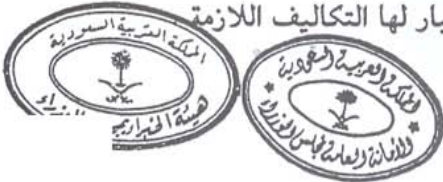 بار لها التكاليف اللازمة
المملكة العربية السعودية
هيئة الخبراء بمجلس الوزراء
المملكة العربية السعودية
الأمانة العامة لمجلس الوزراء